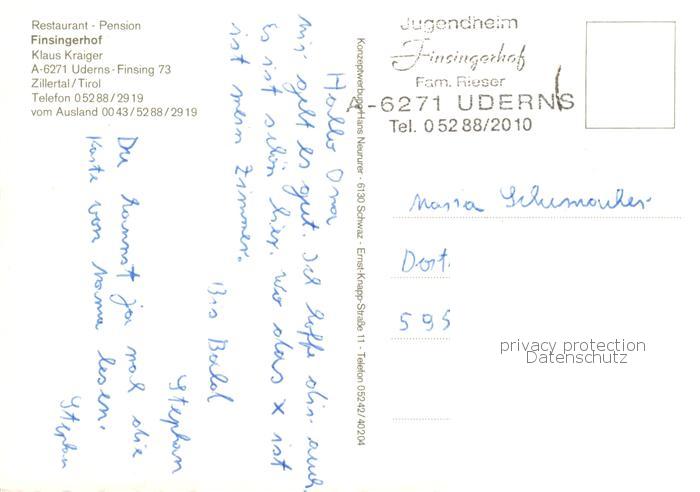 Restaurant - Pension
Finsingerhof
Klaus Kraiger
A-6271 Uderns-Finsing 73
Zillertal/Tirol
Telefon 05288/2919
vom Ausland 0043/5288/2919
Hallo Oma
mir geht es gut. Ich hoffe dir auch.
Es ist schön hier. Wo das x ist
ist mein Zimmer.
Bis Bald
Stephan
Du kannst ja mal die
Karte von Mama lesen.
Stephan
Konzeptwerbung Hans Neururer - 6130 Schwaz - Ernst-Knapp-Straße 11 - Telefon 05242/40204
Jugendheim
Finsingerhof
Fam. Rieser
A-6271 UDERNS
Tel. 05288/2010
Maria Schumacher
Dort.
595
privacy protection
Datenschutz